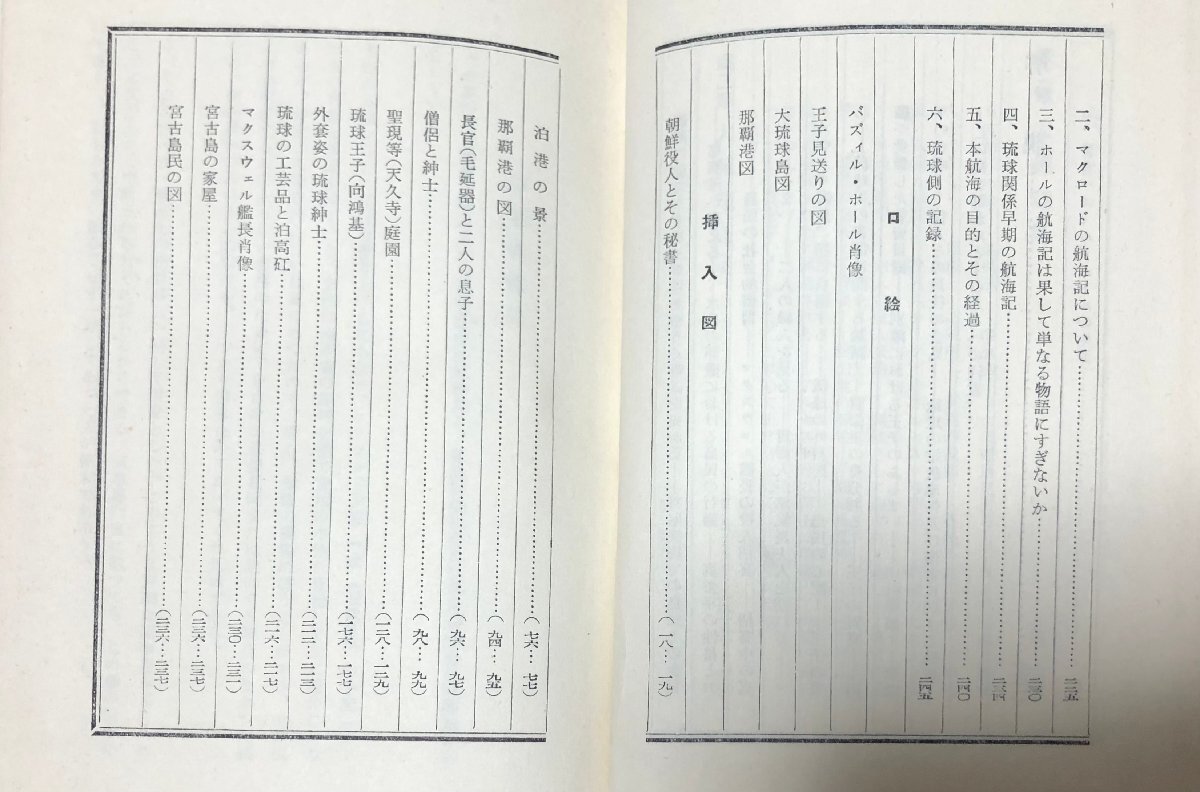 二、マクロードの航海記について……二二五
三、ホールの航海記は果して単なる物語にすぎないか……二三〇
四、琉球関係早期の航海記……二三四
五、本航海の目的とその経過……二四〇
六、琉球側の記録……二四五
口絵
バズィル・ホール肖像
王子見送りの図
大琉球島図
那覇港図
挿入図
朝鮮役人とその秘書……(一八…一九)
泊港の景……(七六…七七)
那覇港の図……(九四…九五)
長官(毛延器)と二人の息子……(九六…九七)
僧侶と紳士……(九八…九九)
聖現等(天久寺)庭園……(一二八…一二九)
琉球王子(向鴻基)……(一七六…一七七)
外套姿の琉球紳士……(二一二…二一三)
琉球の工芸品と泊高矼……(二一六…二一七)
マクスウェル艦長肖像……(二三〇…二三一)
宮古島の家屋……(二三六…二三七)
宮古島民の図……(二三六…二三七)